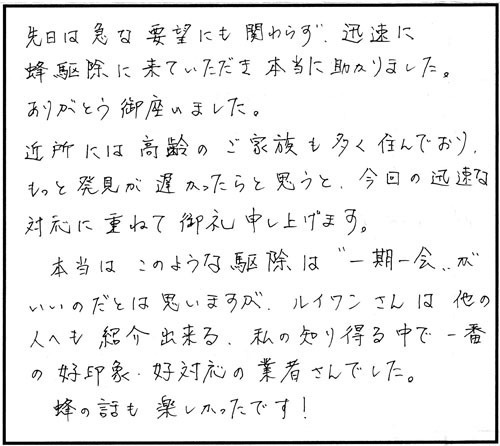 先日は急な要望にも関わらず、迅速に
蜂駆除に来ていただき本当に助かりました。
ありがとう御座いました。
近所には高齢のご家族も多く住んでおり、
もっと発見が遅かったらと思うと、今回の迅速な
対応に重ねて御礼申し上げます。
本当はこのような駆除は〝一期一会〟が
いいのだとは思いますが、ルイワンさんは他の
人へも紹介出来る、私の知り得る中で一番
の好印象・好対応の業者さんでした。
蜂の話も楽しかったです！